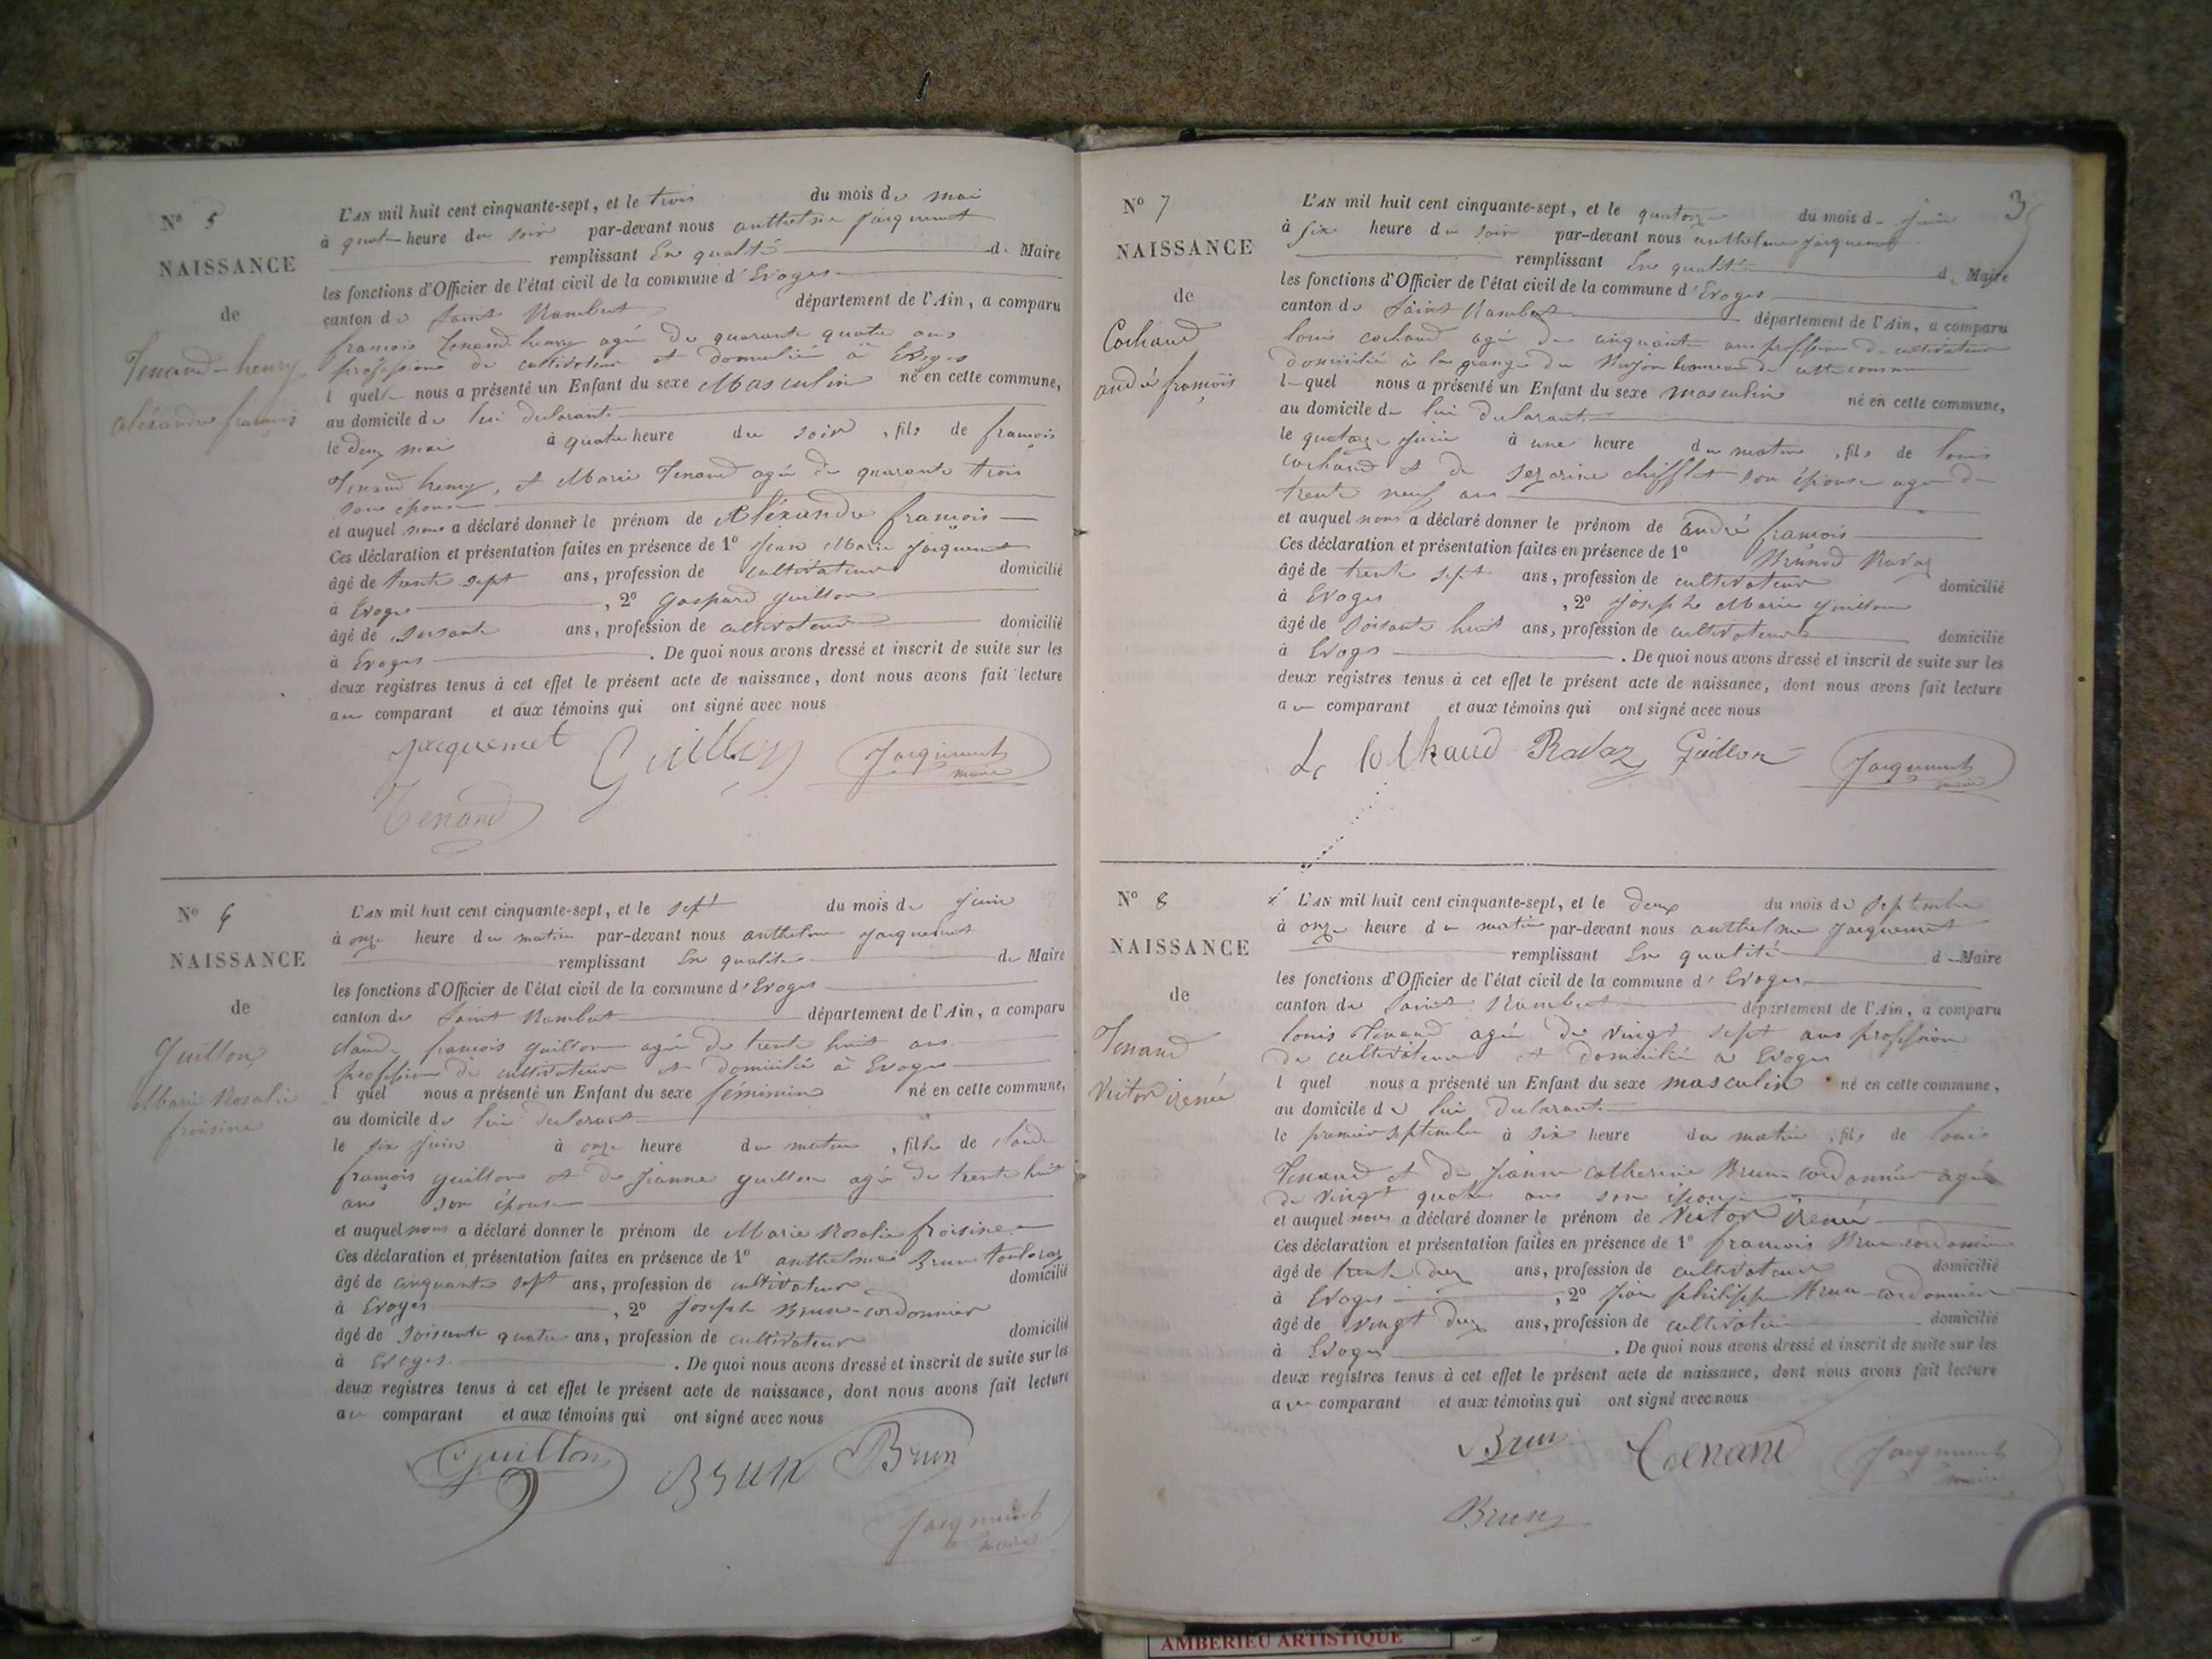 N° 5
NAISSANCE
de
Tenand-henry
aléxandre françois
L'AN mil huit cent cinquante-sept, et le trois du mois de mai
à quatre heure du soir par-devant nous anthelme Jacquemet
remplissant En qualité de Maire
les fonctions d'Officier de l'état civil de la commune d'Evoges
canton de Saint Rambert département de l'Ain, a comparu
françois Tenand henry agé de quarante quatre ans
profession de cultivateur et domicilié à Evoges
l quel nous a présenté un Enfant du sexe Masculin né en cette commune,
au domicile de lui declarant
le deux mai à quatre heure du soir, fils de françois
Tenand henry, et Marie Tenand agée de quarante trois
son épouse
et auquel nous a déclaré donner le prénom de Aléxandre françois
Ces déclaration et présentation faites en présence de 1° Jean Marie Jacquemet
âgé de trente sept ans, profession de cultivateur domicilié
à Evoges, 2° Gaspard Guillon
âgé de soisante ans, profession de cultivateur domicilié
à Evoges. De quoi nous avons dressé et inscrit de suite sur les
deux registres tenus à cet effet le présent acte de naissance, dont nous avons fait lecture
au comparant et aux témoins qui ont signé avec nous
Jacquemet Guillon Jacquemet
maire
Tenand
N° 6
NAISSANCE
de
Guillon
Marie Rosalie
froisine
L'AN mil huit cent cinquante-sept, et le sept du mois de Juin
à onze heure du matin par-devant nous anthelme Jacquemet
remplissant En qualité de Maire
les fonctions d'Officier de l'état civil de la commune d'Evoges
canton de Saint Rambert département de l'Ain, a comparu
claude françois guillon agé de trente huit ans
profession de cultivateur et domicilié à Evoges
l quel nous a présenté un Enfant du sexe féminin né en cette commune,
au domicile de lui declarant
le six Juin à onze heure du matin, fille de claude
françois guillon et de Jeanne guillon agée de trente huit
ans son épouse
et auquel nous a déclaré donner le prénom de Marie Rosalie froisine
Ces déclaration et présentation faites en présence de 1° anthelme Brun
âgé de cinquante sept ans, profession de cultivateur domicilié
à Evoges, 2° Joseph Brun-cordonnier
âgé de soisante quatre ans, profession de cultivateur domicilié
à Evoges. De quoi nous avons dressé et inscrit de suite sur les
deux registres tenus à cet effet le présent acte de naissance, dont nous avons fait lecture
au comparant et aux témoins qui ont signé avec nous
Guillon Brun Brun
Jacquemet
maire
3
N° 7
NAISSANCE
de
Cochaud
andré françois
L'AN mil huit cent cinquante-sept, et le quatorze du mois de Juin
à six heure du soir par-devant nous anthelme Jacquemet
remplissant En qualité de Maire
les fonctions d'Officier de l'état civil de la commune d'Evoges
canton de Saint Rambert département de l'Ain, a comparu
louis cochaud agé de cinquante ans profession de cultivateur
domicilié à la grange du hameau de cette commune
lequel nous a présenté un Enfant du sexe masculin né en cette commune,
au domicile de lui declarant
le quatorze Juin à une heure du matin, fils de louis
cochaud et de sezarine chifflet son épouse agée de
trente neuf ans
et auquel nous a déclaré donner le prénom de andré françois
Ces déclaration et présentation faites en présence de 1° Brunod Ravaz
âgé de trente sept ans, profession de cultivateur domicilié
à Evoges, 2° Joseph Marie guillon
âgé de soisante huit ans, profession de cultivateur domicilié
à Evoges. De quoi nous avons dressé et inscrit de suite sur les
deux registres tenus à cet effet le présent acte de naissance, dont nous avons fait lecture
au comparant et aux témoins qui ont signé avec nous
L Cochaud Ravaz Guillon Jacquemet
maire
N° 8
NAISSANCE
de
Tenand
Victor irenée
L'AN mil huit cent cinquante-sept, et le deux du mois de septembre
à onze heure du matin par-devant nous anthelme Jacquemet
remplissant En qualité d Maire
les fonctions d'Officier de l'état civil de la commune d'Evoges
canton de Saint Rambert département de l'Ain, a comparu
louis Tenand agé de vingt sept ans profession
de cultivateur et domicilié a Evoges
l quel nous a présenté un Enfant du sexe masculin né en cette commune,
au domicile de lui declarant
le premier septembre à six heure du matin, fils de louis
Tenand et de Jeanne catherine Brun-cordonnier agée
de vingt quatre ans son épouse
et auquel nous a déclaré donner le prénom de Victor irenée
Ces déclaration et présentation faites en présence de 1° francois Brun cordonnier
âgé de trente deux ans, profession de cultivateur domicilié
à Evoges, 2° philippe Brun-cordonnier
âgé de vingt deux ans, profession de cultivateur domicilié
à Evoges. De quoi nous avons dressé et inscrit de suite sur les
deux registres tenus à cet effet le présent acte de naissance, dont nous avons fait lecture
au comparant et aux témoins qui ont signé avec nous
Brun Tenand Jacquemet
maire
Brun
AMBERIEU ARTISTIQUE